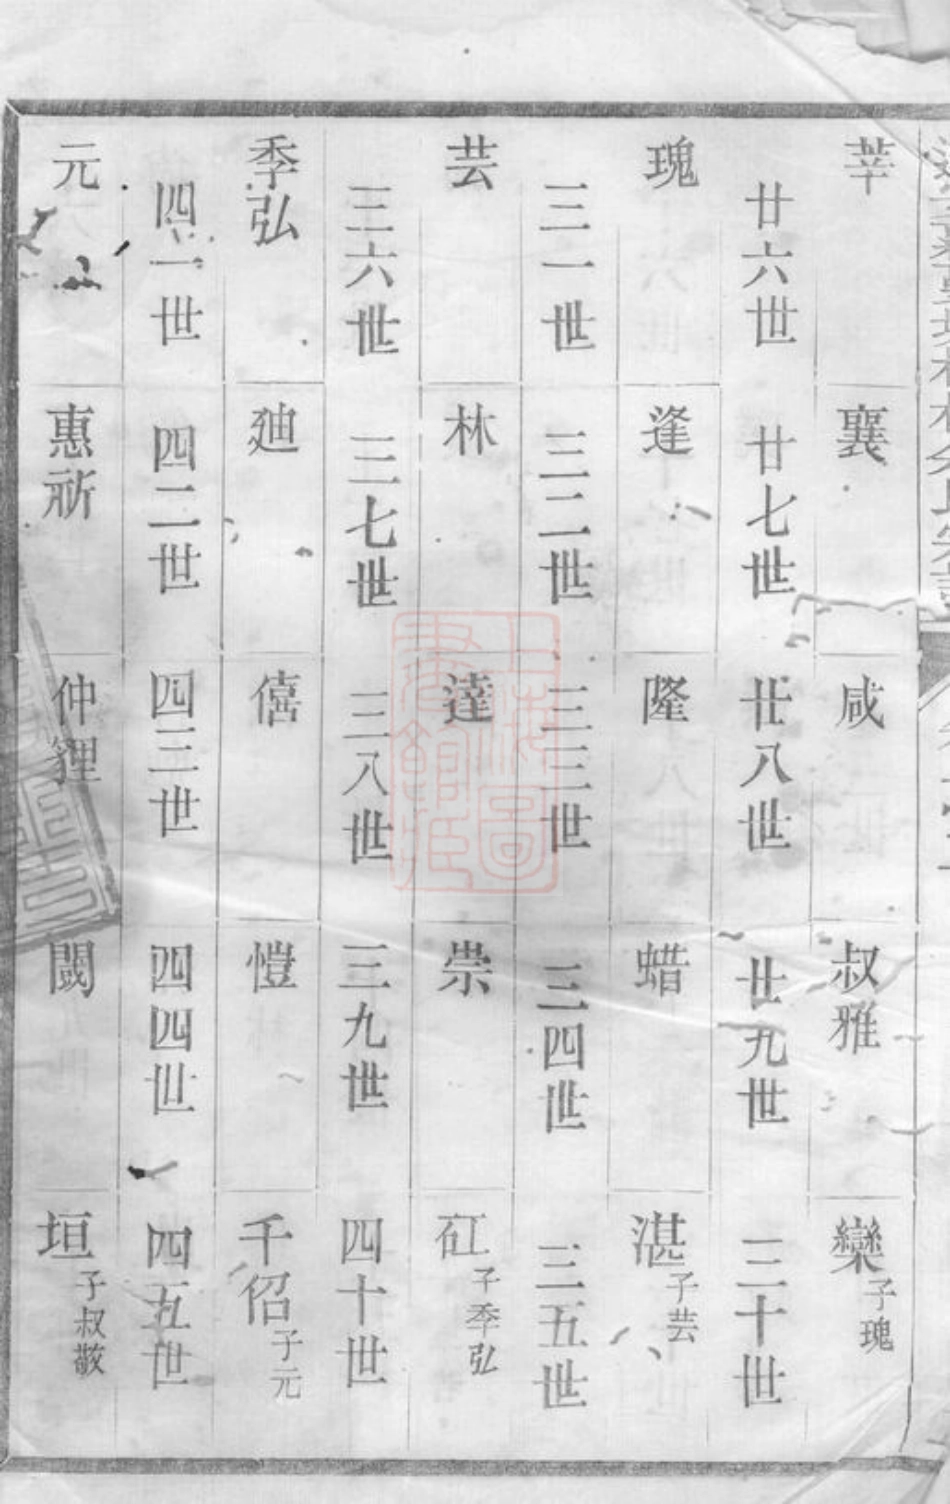 莘　襄　咸　叔雅　欒子瑰
廿六世　廿七世　廿八世　廿九世　三十世
瑰　逢　隆　蜡　湛子芸
三一世　三二世　三三世　三四世　三五世
芸　林　達　崇　矼子季弘
三六世　三七世　三八世　三九世　四十世
季弘　廸　僖　愷　千佋子元
四一世　四二世　四三世　四四世　四五世
元　惠　仲貍　闞　垣子叔敬